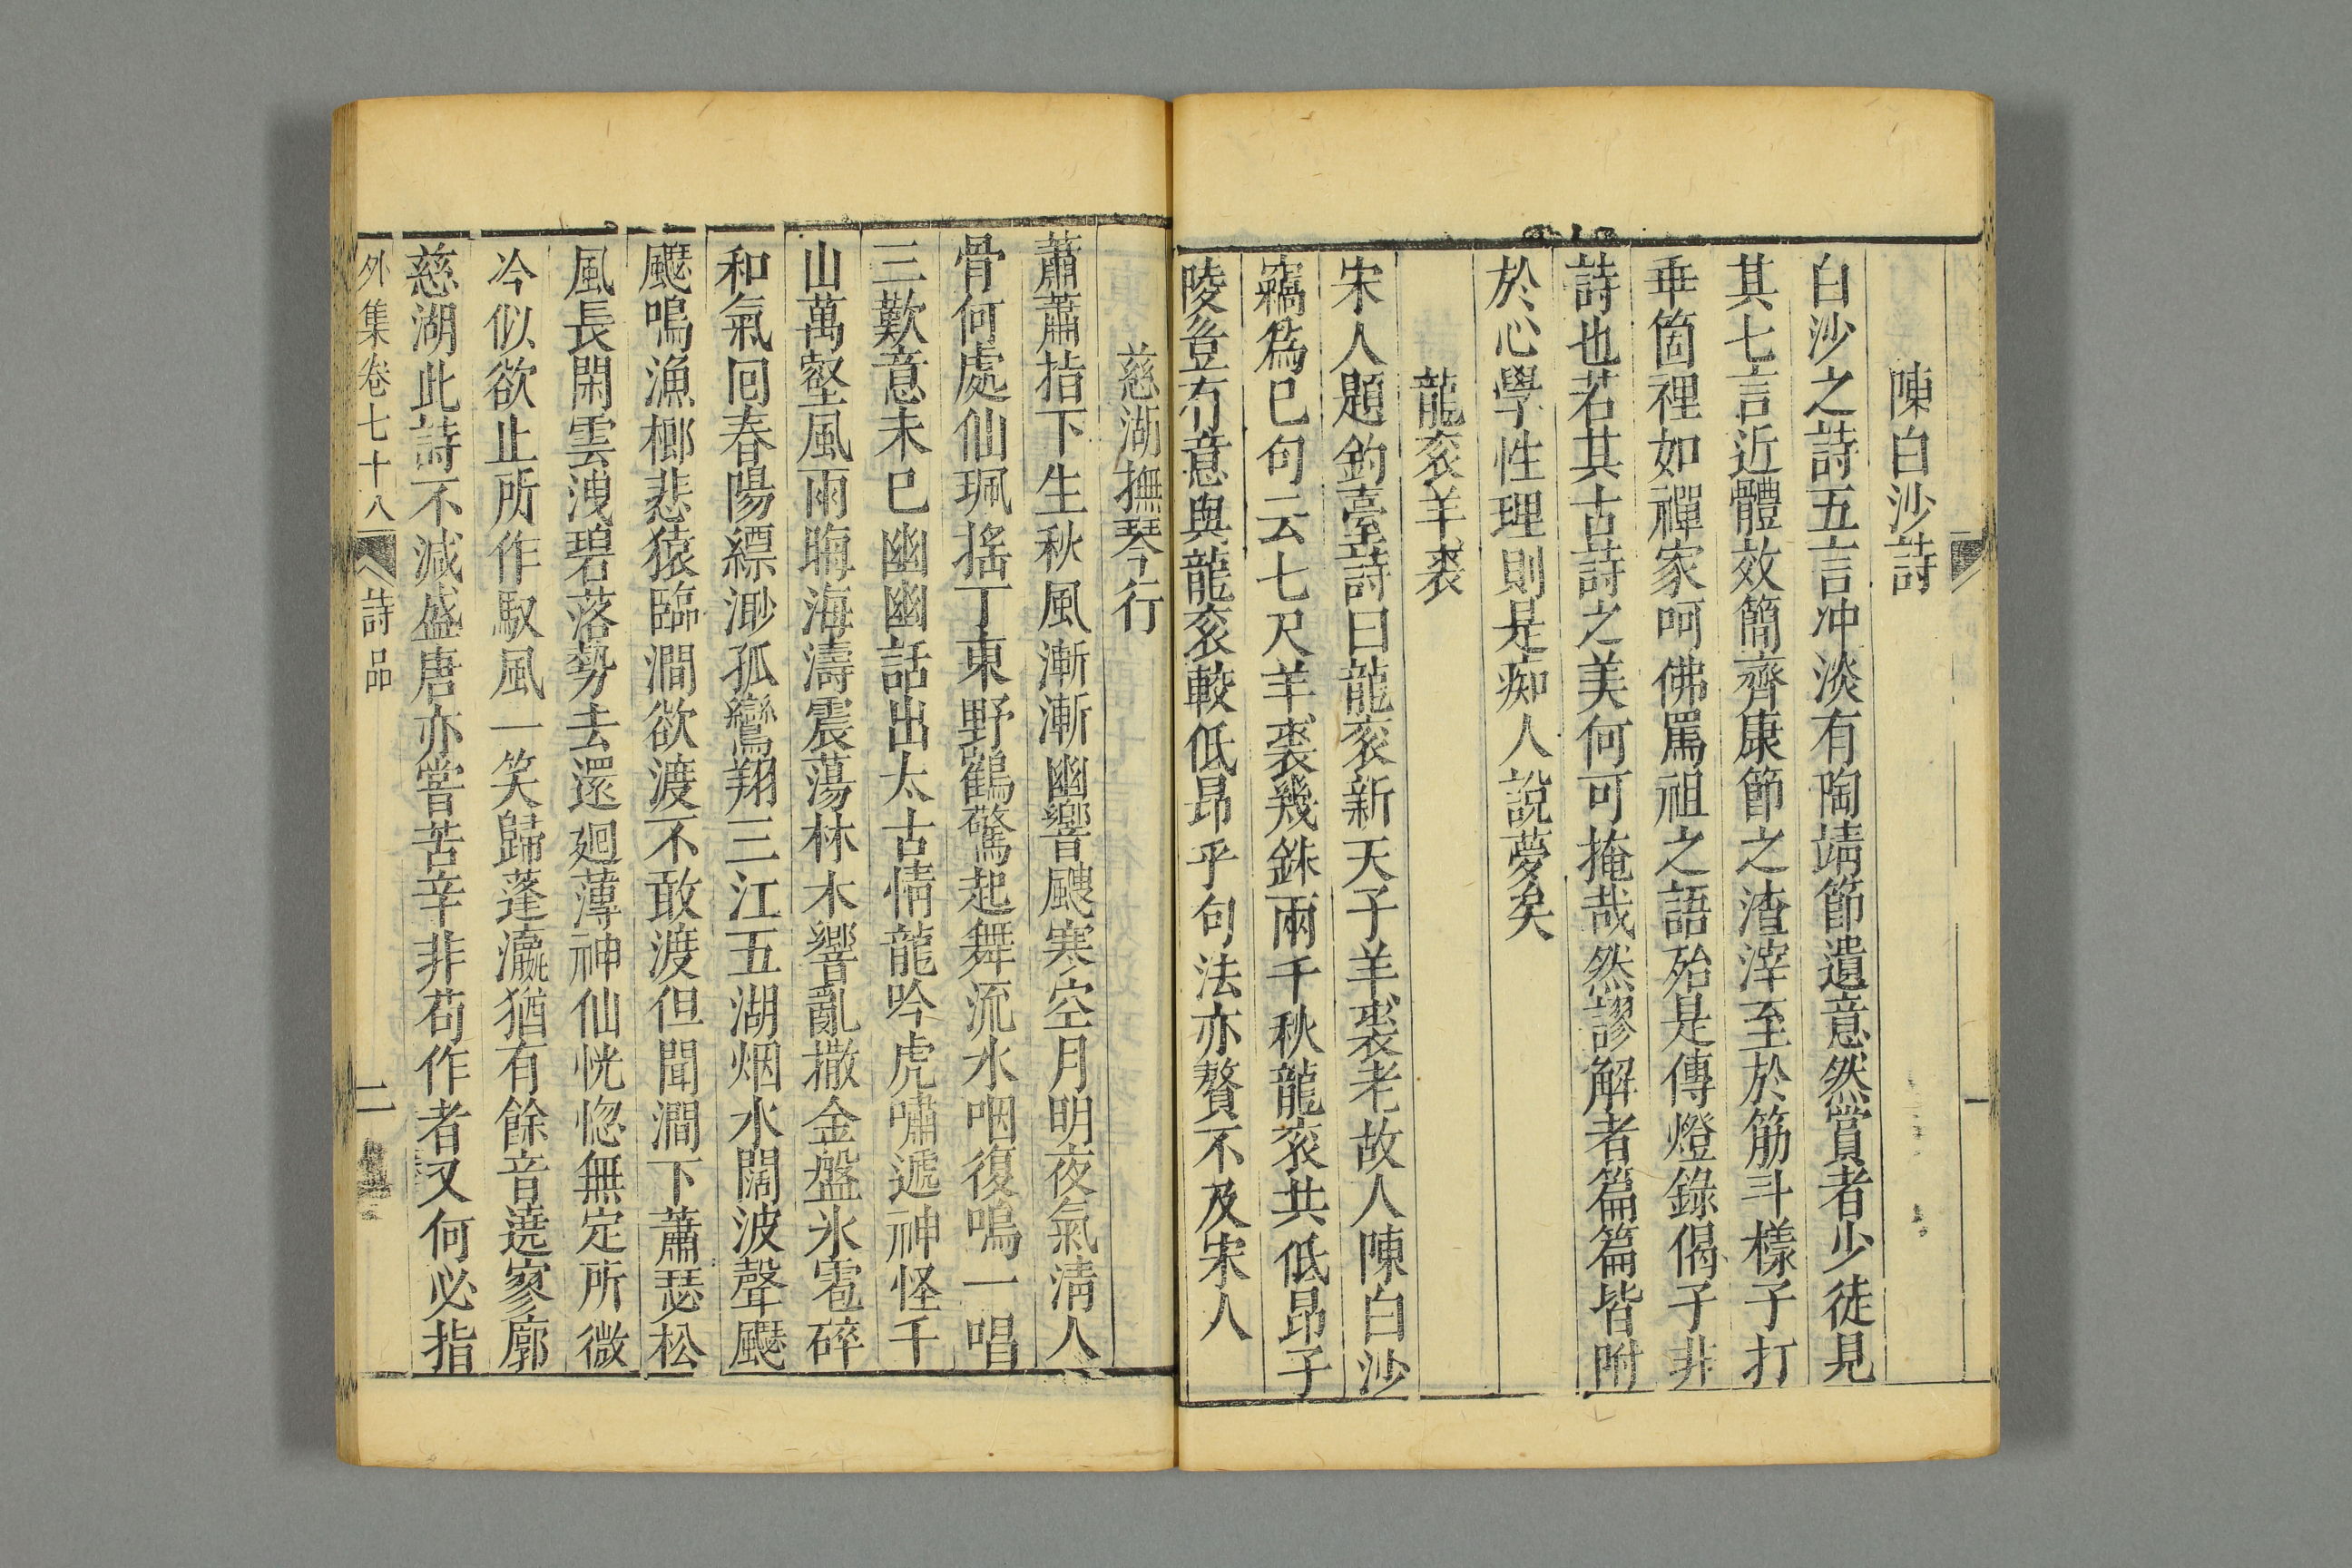 陳白沙詩
白沙之詩五言冲淡有陶靖節遺意然賞者少徒見
其七言近體效簡齊康節之渣滓至於筋斗樣子打
乖箇裡如禪家呵佛罵祖之語殆是傳燈錄偈子非
詩也若其古詩之美何可掩哉然謬解者篇篇皆附
於心學性理則是痴人說夢矣
龍衮羊裘
宋人題釣臺詩曰龍衮新天子羊裘老故人陳白沙
竊爲已句云七尺羊裘幾銖兩千秋龍衮共低昂子
陵豈有意與龍衮較低昂乎句法亦贅不及宋人
慈湖撫琴行
蕭蕭指下生秋風漸漸幽響颼寒空月明夜氣清人
骨何處仙珮搖丁東野鶴驚起舞流水咽復鳴一唱
三歎意未已幽幽話出太古情龍吟虎嘯遞神怪千
山萬壑風雨晦海濤震蕩林木響亂撒金盤氷雹碎
和氣囘春陽縹渺孤鸞翔三江五湖烟水闊波聲颾
颾鳴漁榔悲猿臨澗欲渡不敢渡但聞澗下蕭瑟松
風長閑雲洩碧落勢去還廻薄神仙恍惚無定所微
冷似欲止所作馭風一笑歸蓬瀛猶有餘音遶寥廓
慈湖此詩不減盛唐亦嘗苦辛非苟作者又何必指
外集卷七十八
詩品
二